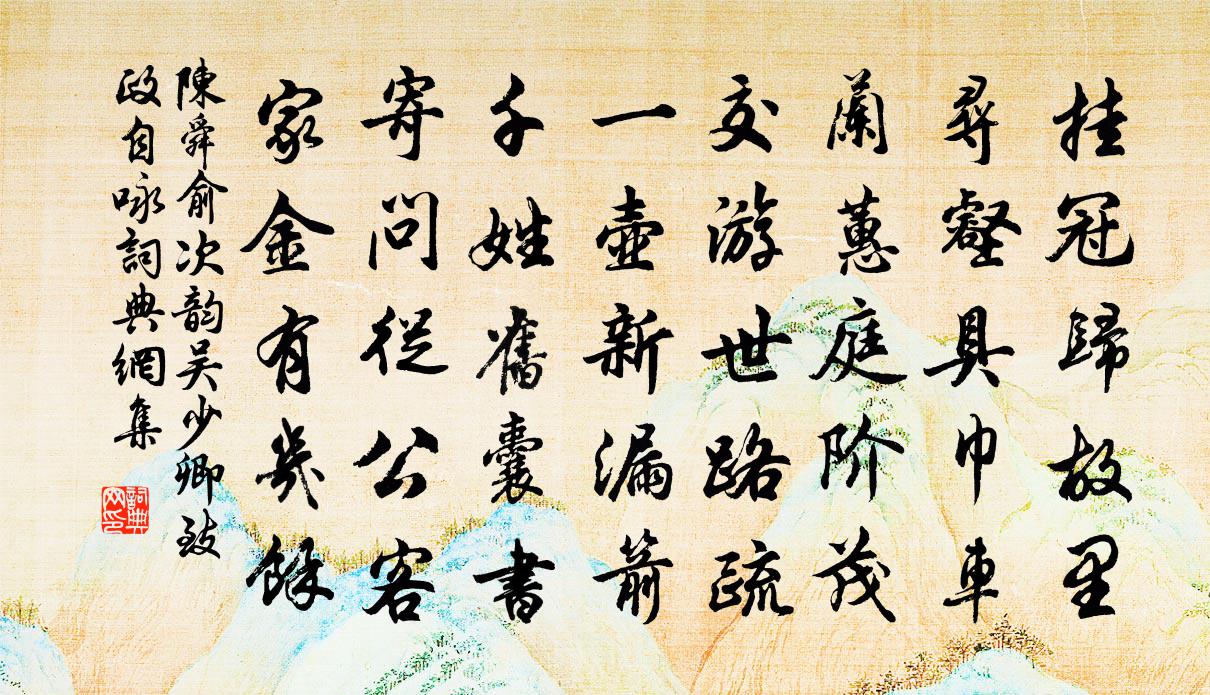 挂冠歸故里
尋壑具巾車
蘭蕙庭阶茂
交游世路疏
一壺新漏箭
千姓舊囊書
寄問從公客
家金有幾餘
陳舜俞次韵吴少卿致
政自咏詞典網集
詞典
网印